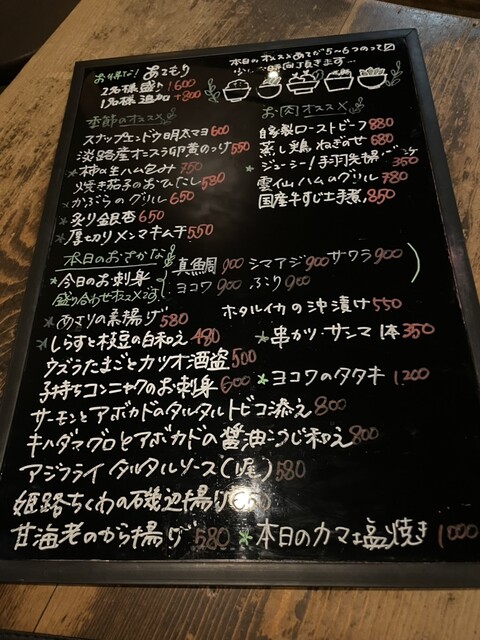 お得な! あてもり
2名様盛り 1,600
1名様追加 +800
本日のオススメあてが5〜6つのって
季節のオススメ
スナップエンドウ明太マヨ 600
淡路産オニスラ卵黄のっけ 550
柿の生ハム包み 750
焼き茄子のおひたし 580
かぶらのグリル 650
炙り銀杏 650
厚切りメンマキムチ 550
お肉オススメ
自家製ローストビーフ 880
蒸し鶏ねぎのせ 680
ジューシー!手羽唐揚げ 350
雲仙ハムのグリル 780
国産牛すじ土手煮 850
本日のおさかな
今日のお刺身
盛り合わせオススメです
真鯛 900 シマアジ 900 サワラ 900
ヨコワ 900 ぶり 900
あさりの素揚げ 580
ホタルイカの沖漬け 550
しらすと枝豆の白和え 480
串かつ・サンマ 1本 350
ウズラたまごとカツオ酒盗 500
子持ちコンニャクのお刺身 600
ヨコワのタタキ 1200
サーモンとアボカドのタルタルトビコ添え 800
キハダマグロとアボカドの醤油こうじ和え 800
アジフライ タルタルソース(1尾) 580
姫路ちくわの磯辺揚げ
甘海老のから揚げ 580
本日のカマ塩焼き 1000